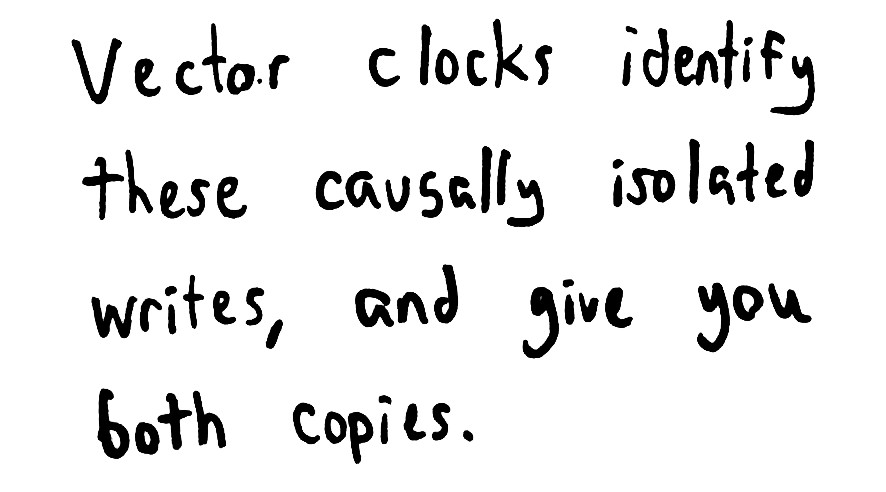 Vector clocks identify
these causally isolated
writes, and give you
both copies.